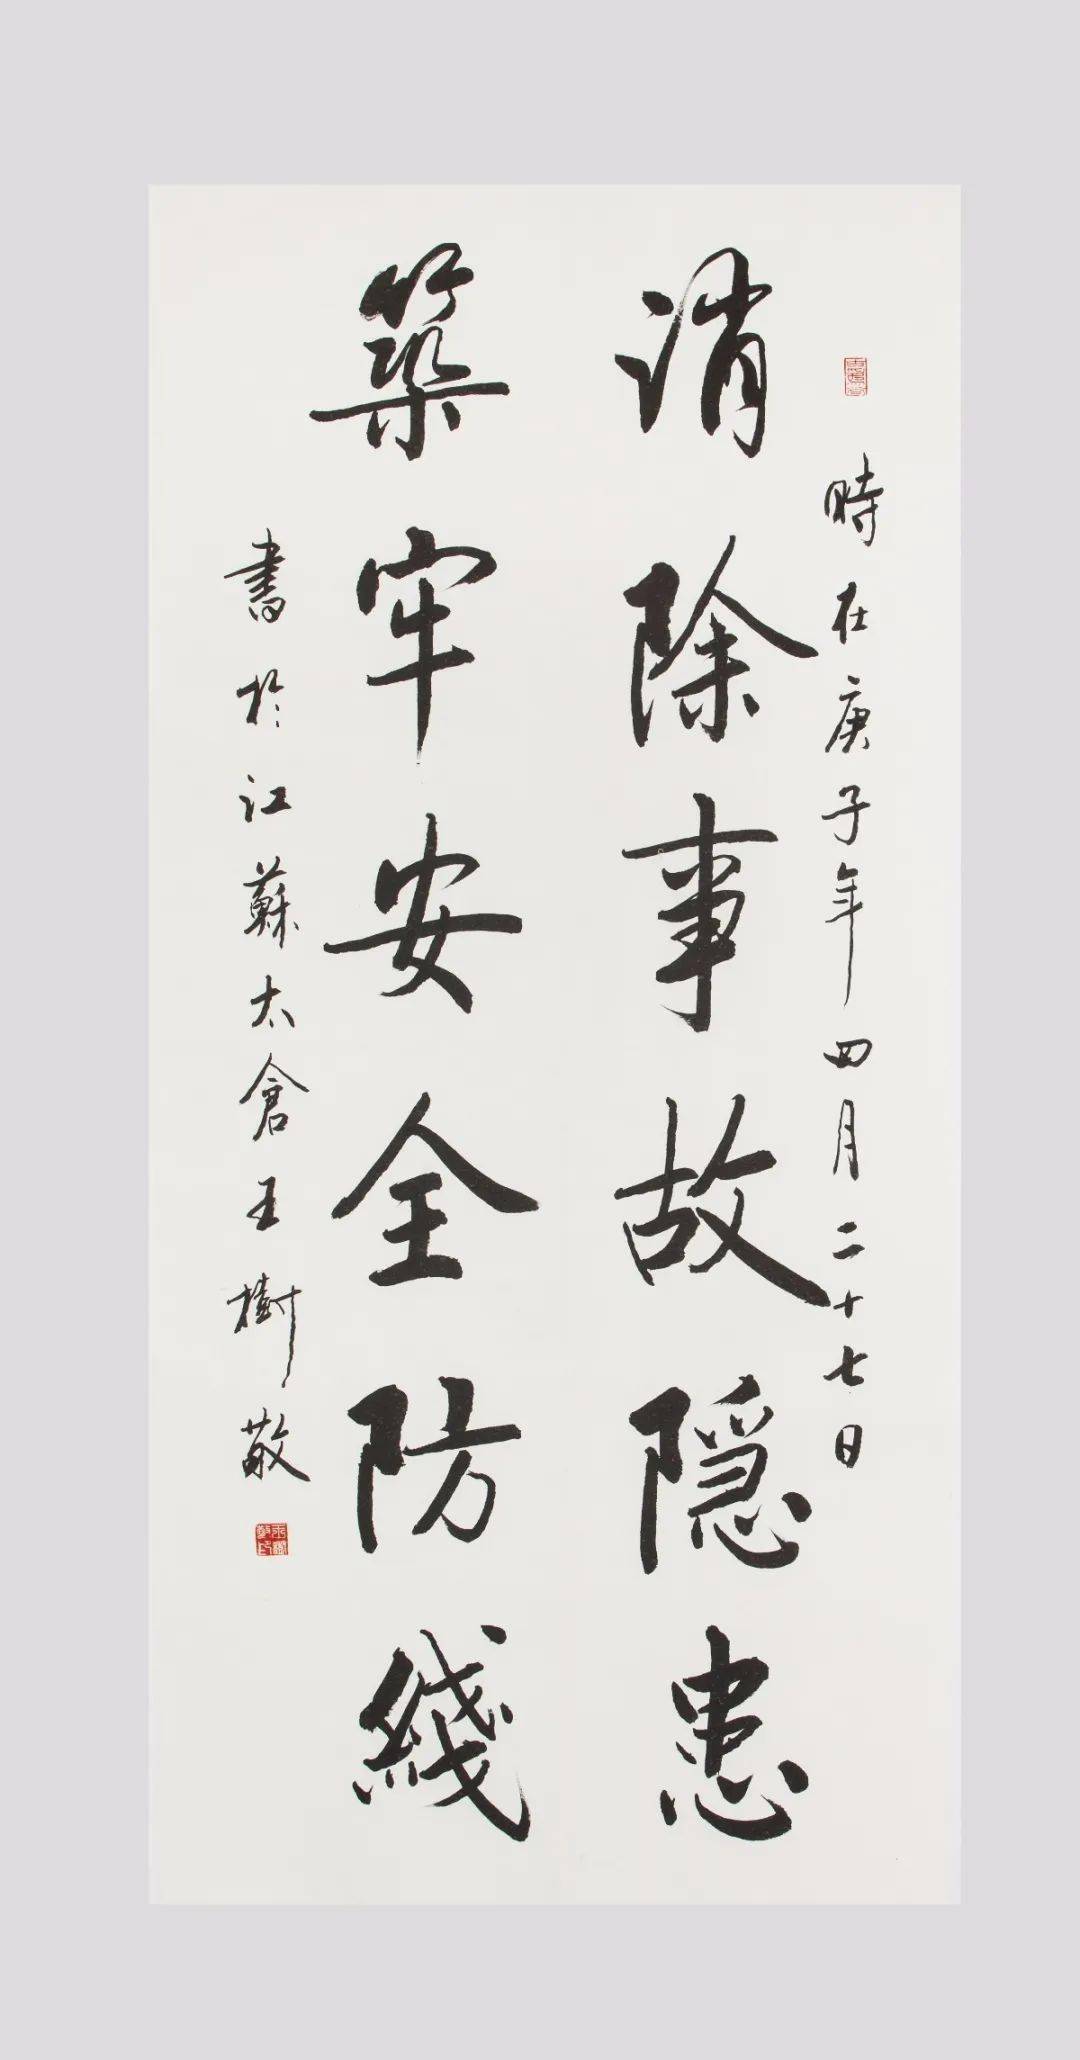 時在庚子年四月二十七日
消除事故隐患
築牢安全防綫
書於江蘇太倉王樹敬